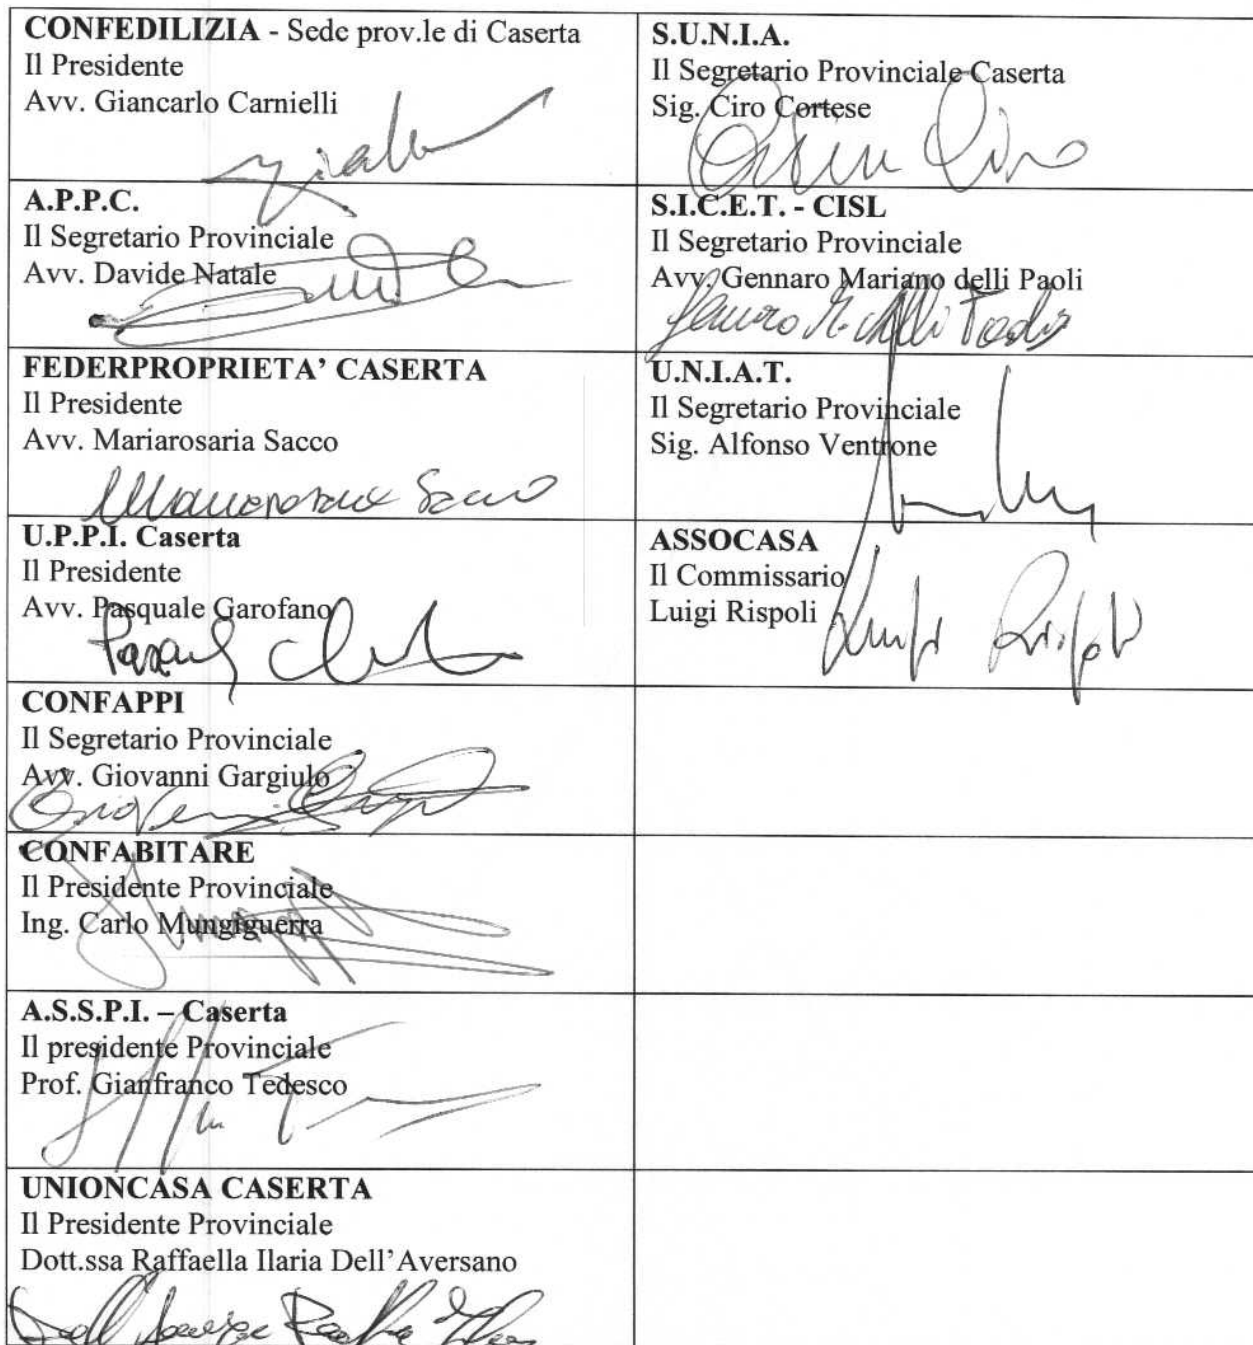 CONFEDILIZIA - Sede prov.le di Caserta
Il Presidente
Avv. Giancarlo Carnielli
S.U.N.I.A.
Il Segretario Provinciale Caserta
Sig. Ciro Cortese
A.P.P.C.
Il Segretario Provinciale
Avv. Davide Natale
S.I.C.E.T. - CISL
Il Segretario Provinciale
Avv. Gennaro Mariano delli Paoli
FEDERPROPRIETA' CASERTA
Il Presidente
Avv. Mariarosaria Sacco
Mariarosaria Sacco
U.N.I.A.T.
Il Segretario Provinciale
Sig. Alfonso Ventrone
U.P.P.I. Caserta
Il Presidente
Avv. Pasquale Garofano
ASSOCASA
Il Commissario
Luigi Rispoli
Luigi Rispoli
CONFAPPI
Il Segretario Provinciale
Avv. Giovanni Gargiulo
CONFABITARE
Il Presidente Provinciale
Ing. Carlo Mungiguerra
A.S.S.P.I. – Caserta
Il presidente Provinciale
Prof. Gianfranco Tedesco
UNIONCASA CASERTA
Il Presidente Provinciale
Dott.ssa Raffaella Ilaria Dell'Aversano